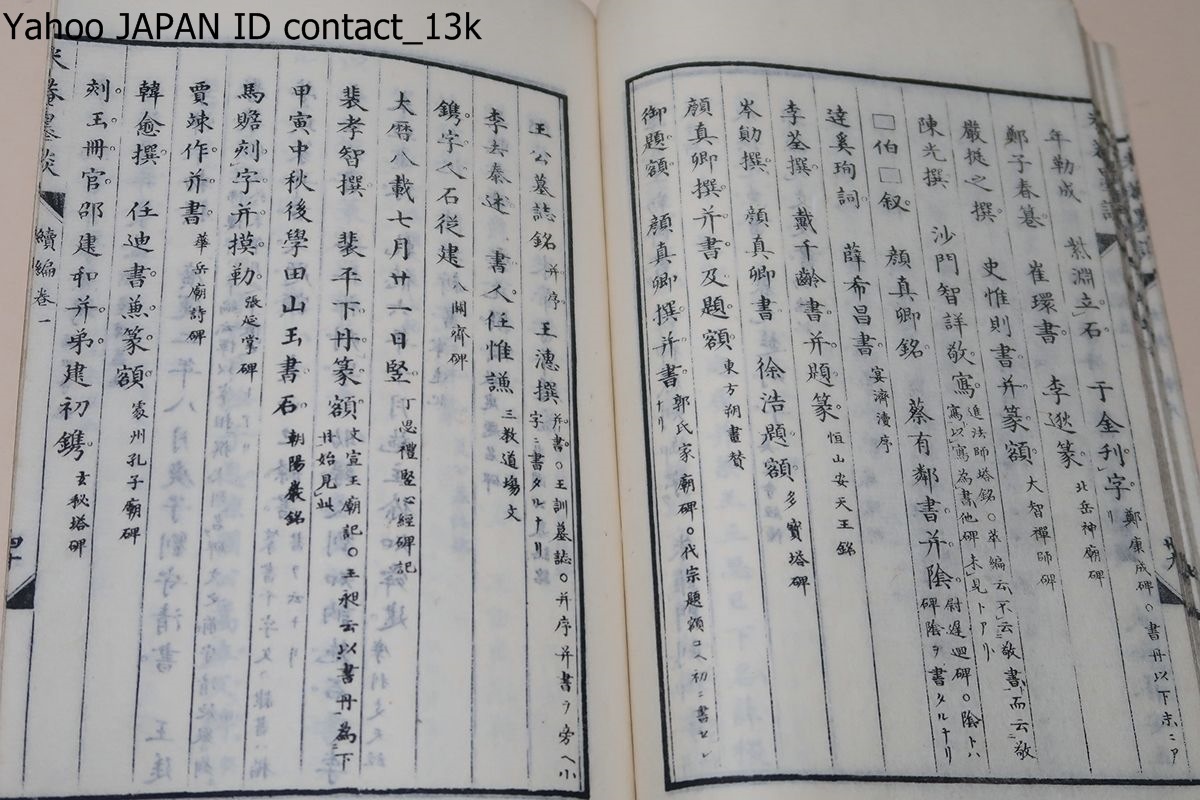 Yahoo JAPAN ID contact_13k
年勒成 立石 于金刊字 鄭康成碑○書丹以下末ニア
リ
鄭子春纂 崔環書 李逖篆 北岳神廟碑
嚴挺之撰 史惟則書并篆額 大智禪師碑
陳光撰 沙門智詳敬寫 進法師塔銘○萃編云不云敬書而云敬
寫以寫為書他碑未見トアリ
□伯□叙 顔真卿銘 蔡有鄰書并陰 尉遲迴碑○陰トハ
碑陰ヲ書タルナリ
達奚珣詞 薛希昌書 宴濟瀆序
李荃撰 戴千齡書并題篆 恒山安天王銘
岑勛撰 顔真卿書 徐浩題額 多寶塔碑
顔真卿撰并書及題額 東方朔畫贊
御題額 顔真卿撰并書 郭氏家廟碑○代宗題額ユヘ初ニ書セシ
ナリ
王公墓誌銘并序 王漶撰 并書○王訓墓誌○并序并書ヲ旁ヘ小
字ニ書タルナリ
李去泰述 書人任惟謙 三教道場文
鐫字人石従建 八關齊碑
大曆八載七月廿一日竪 丁思禮竪心經碑記
裴孝智撰 裴平下丹篆額 文宣王廟記○王昶云以書丹為下
丹始見此
甲寅中秋後學田山玉書石 朝陽巖銘
馬瞻刻字并摸勒 張延賞碑
賈竦作并書 華岳廟詩碑
韓愈撰 任迪書兼篆額 處州孔子廟碑
刻玉冊官邵建和并弟建初鐫 玄秘塔碑
米菴墨談
續編卷一
四十